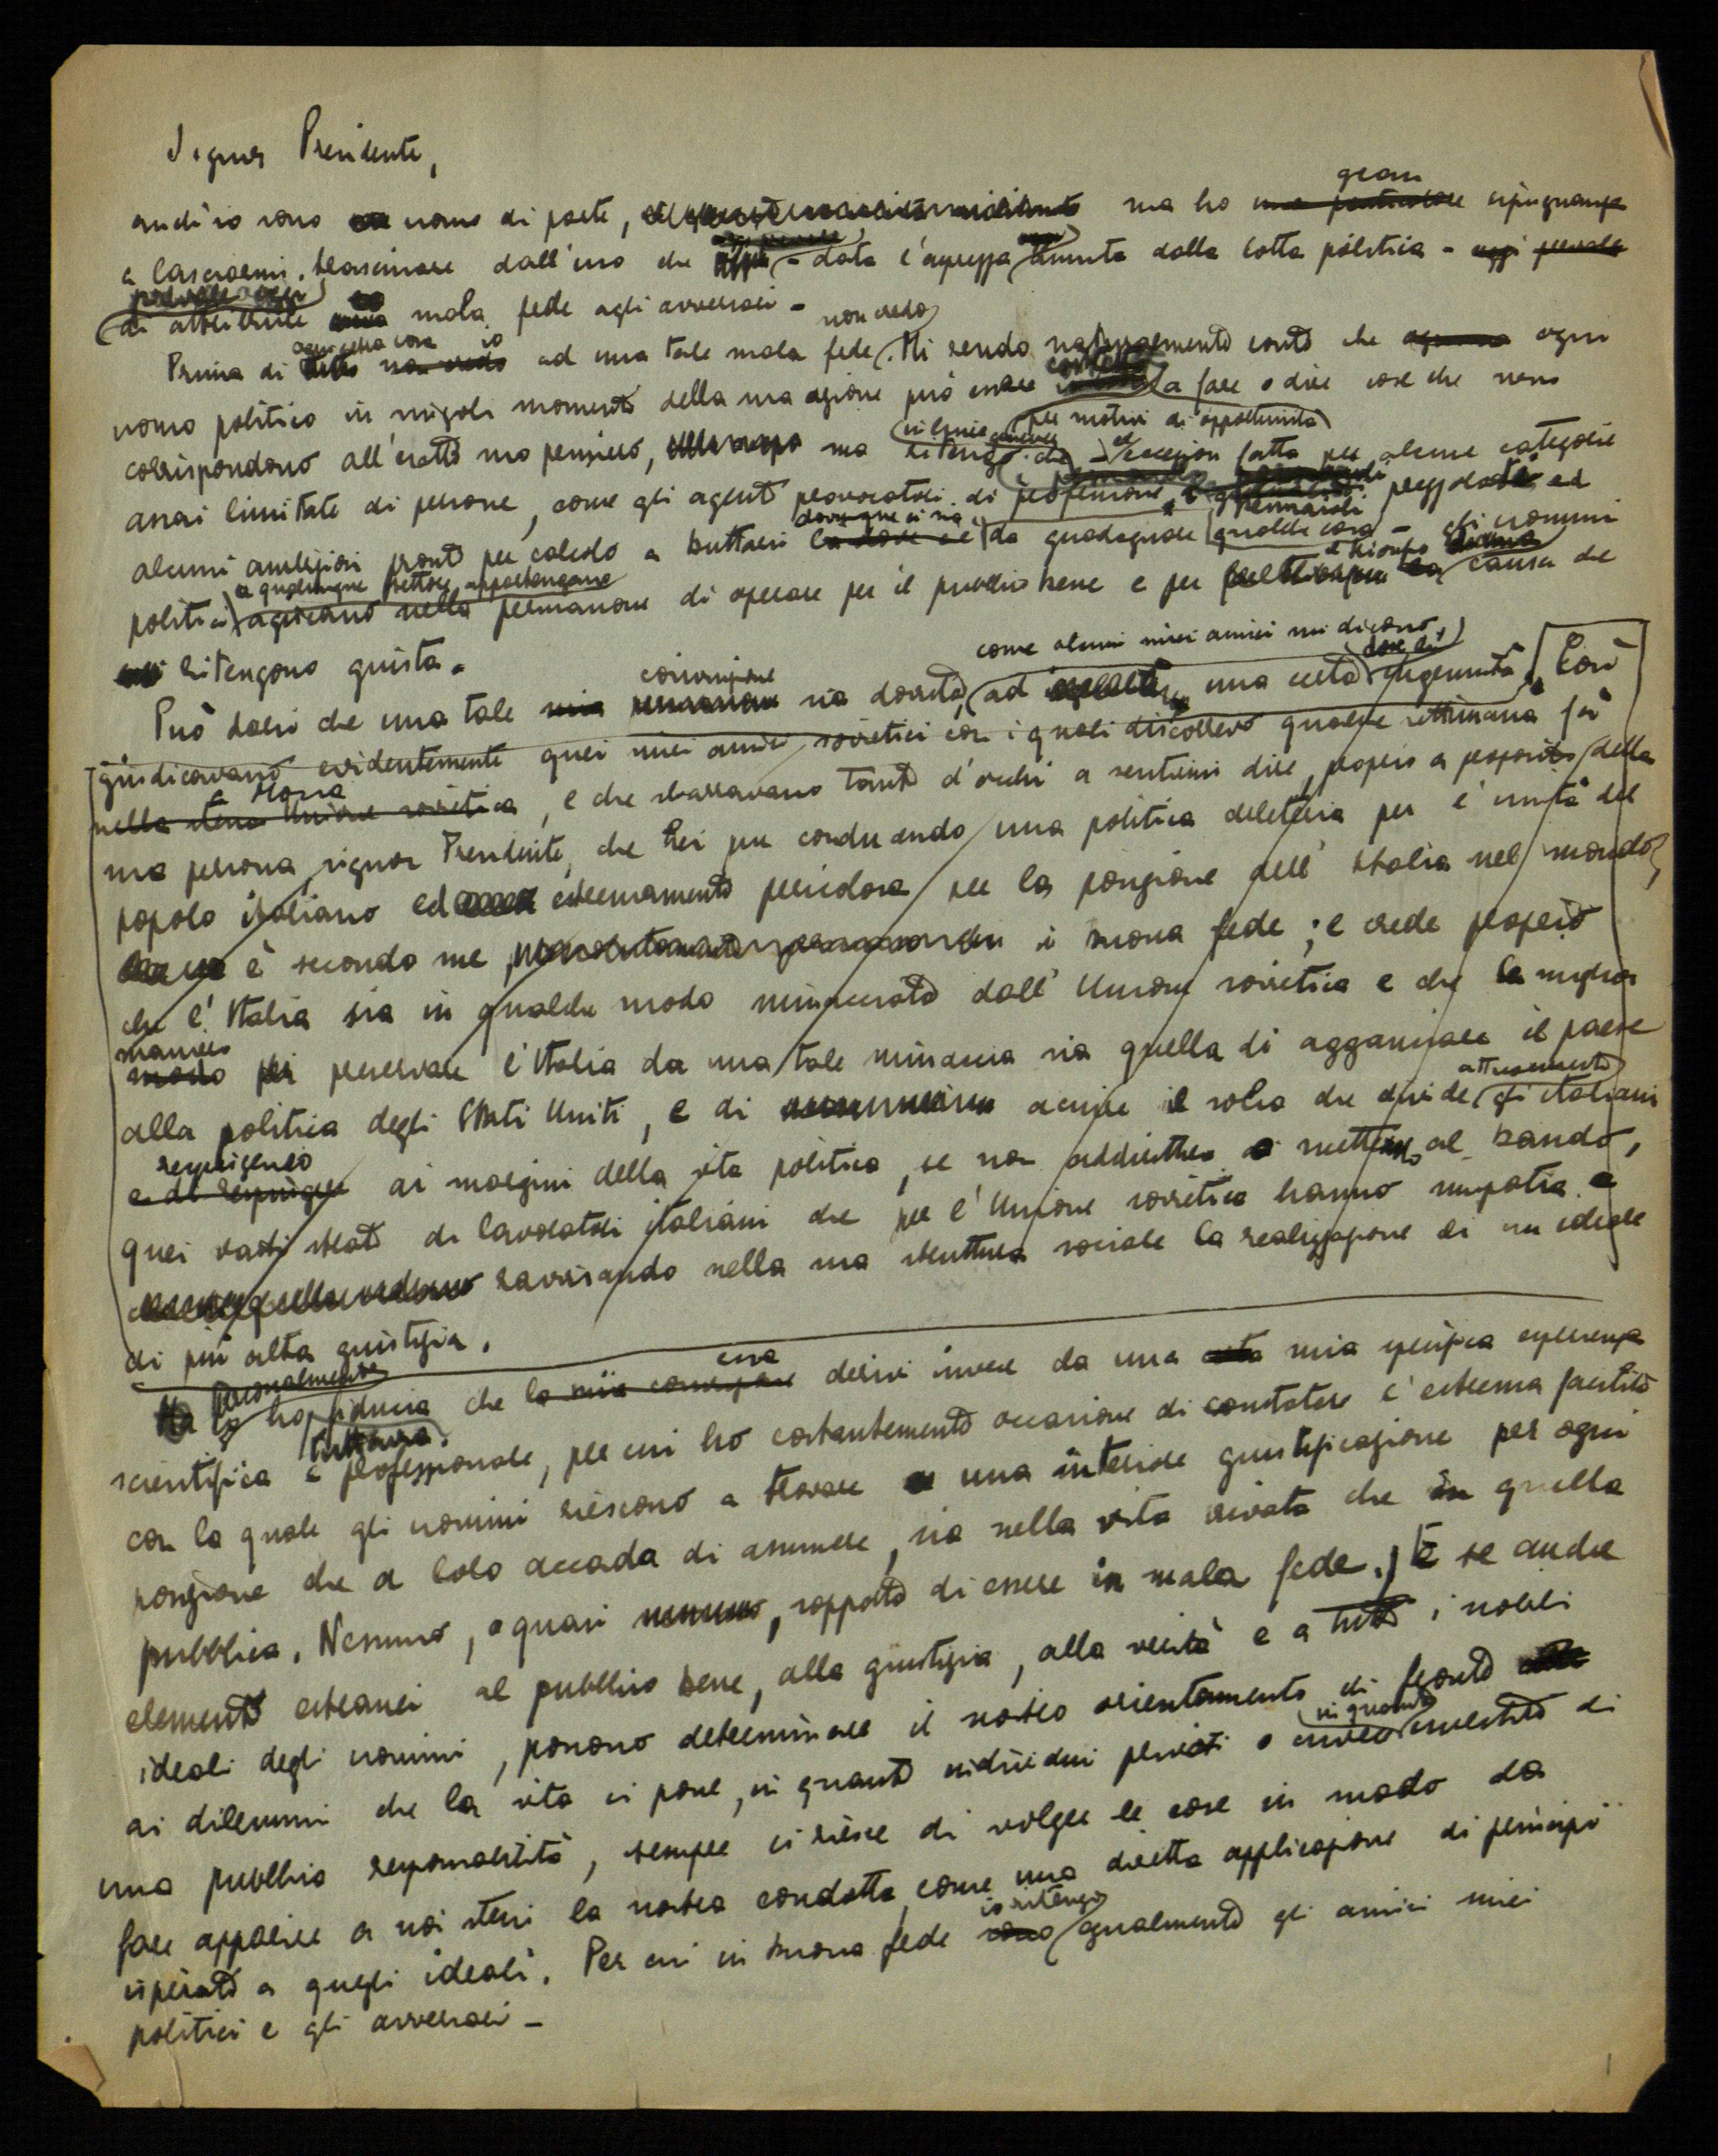 Signor Presidente,
anch'io sono uomo di parte, ma ho gran ripugnanza
a lasciarmi trascinare dall'uso che - data l'asprezza assunta dalla lotta politica - oggi prevale
prevale oggi
di attribuire mala fede agli avversari -
ogni altra cosa io non credo
Prima di tutto non credo ad una tale mala fede. Mi rendo naturalmente conto che ognuno ogni
uomo politico in singoli momenti della sua azione può essere costretto a fare o dire cose che non
per motivi di opportunità
corrispondono all'esatto suo pensiero, ma ritengo che in linea generale eccezion fatta per alcune categorie
assai limitate di persone, come gli agenti provocatori di professione, i pennaioli prezzolati ed
alcuni ambiziosi pronti per calcolo a buttarsi dovunque ci sia da guadagnare qualche cosa - gli uomini
a qualunque settore appartengano il trionfo
politici agiscano nella persuasione di operare per il pubblico bene e per la causa che
ritengono giusta.
come alcuni miei amici mi dicono,
convinzione
Può darsi che una tale mia persuasione sia dovuta, ad una certa dose di ingenuità. Così
giudicavano evidentemente quei miei amici sovietici con i quali discorrevo qualche settimana fa
a Mosca
nella stessa Unione sovietica, e che sbarravano tanto d'occhi a sentirmi dire, proprio a proposito della
sua persona, signor Presidente, che Lei pur conducendo una politica deleteria per l'unità del
popolo italiano ed estremamente pericolosa per la posizione dell'Italia nel mondo,
è secondo me, in buona fede; e crede proprio
che l'Italia sia in qualche modo minacciata dall'Unione sovietica e che la miglior
maniera
modo per preservare l'Italia da una tale minaccia sia quella di agganciare il paese
attualmente
alla politica degli Stati Uniti, e di acuire il solco che divide gli italiani
respingendo
e di respingere ai margini della vita politica, se non addirittura mettendo al bando,
quei vasti strati di lavoratori italiani che per l'Unione sovietica hanno simpatia
ravvisando nella sua struttura sociale la realizzazione di un ideale
di più alta giustizia.
personalmente essa
Ma io ho fiducia che la mia convinzione derivi invece da una mia specifica esperienza
tuttavia
scientifica e professionale, per cui ho costantemente occasione di constatare l'estrema facilità
con la quale gli uomini riescono a trovare una interiore giustificazione per ogni
posizione che a loro accada di assumere, sia nella vita privata che in quella
pubblica. Nessuno, o quasi nessuno, sopporta di essere in mala fede. E se anche
elementi estranei al pubblico bene, alla giustizia, alla verità e a tutti i nobili
ideali degli uomini, possono determinare il nostro orientamento di fronte
in quanto
ai dilemmi che la vita ci pone, in quanto individui privati o investiti di
una pubblica responsabilità, sempre ci riesce di volgere le cose in modo da
fare apparire a noi stessi la nostra condotta come una diretta applicazione di principî
io ritengo
ispirati a quegli ideali. Per cui in buona fede sono egualmente gli amici miei
politici e gli avversari -